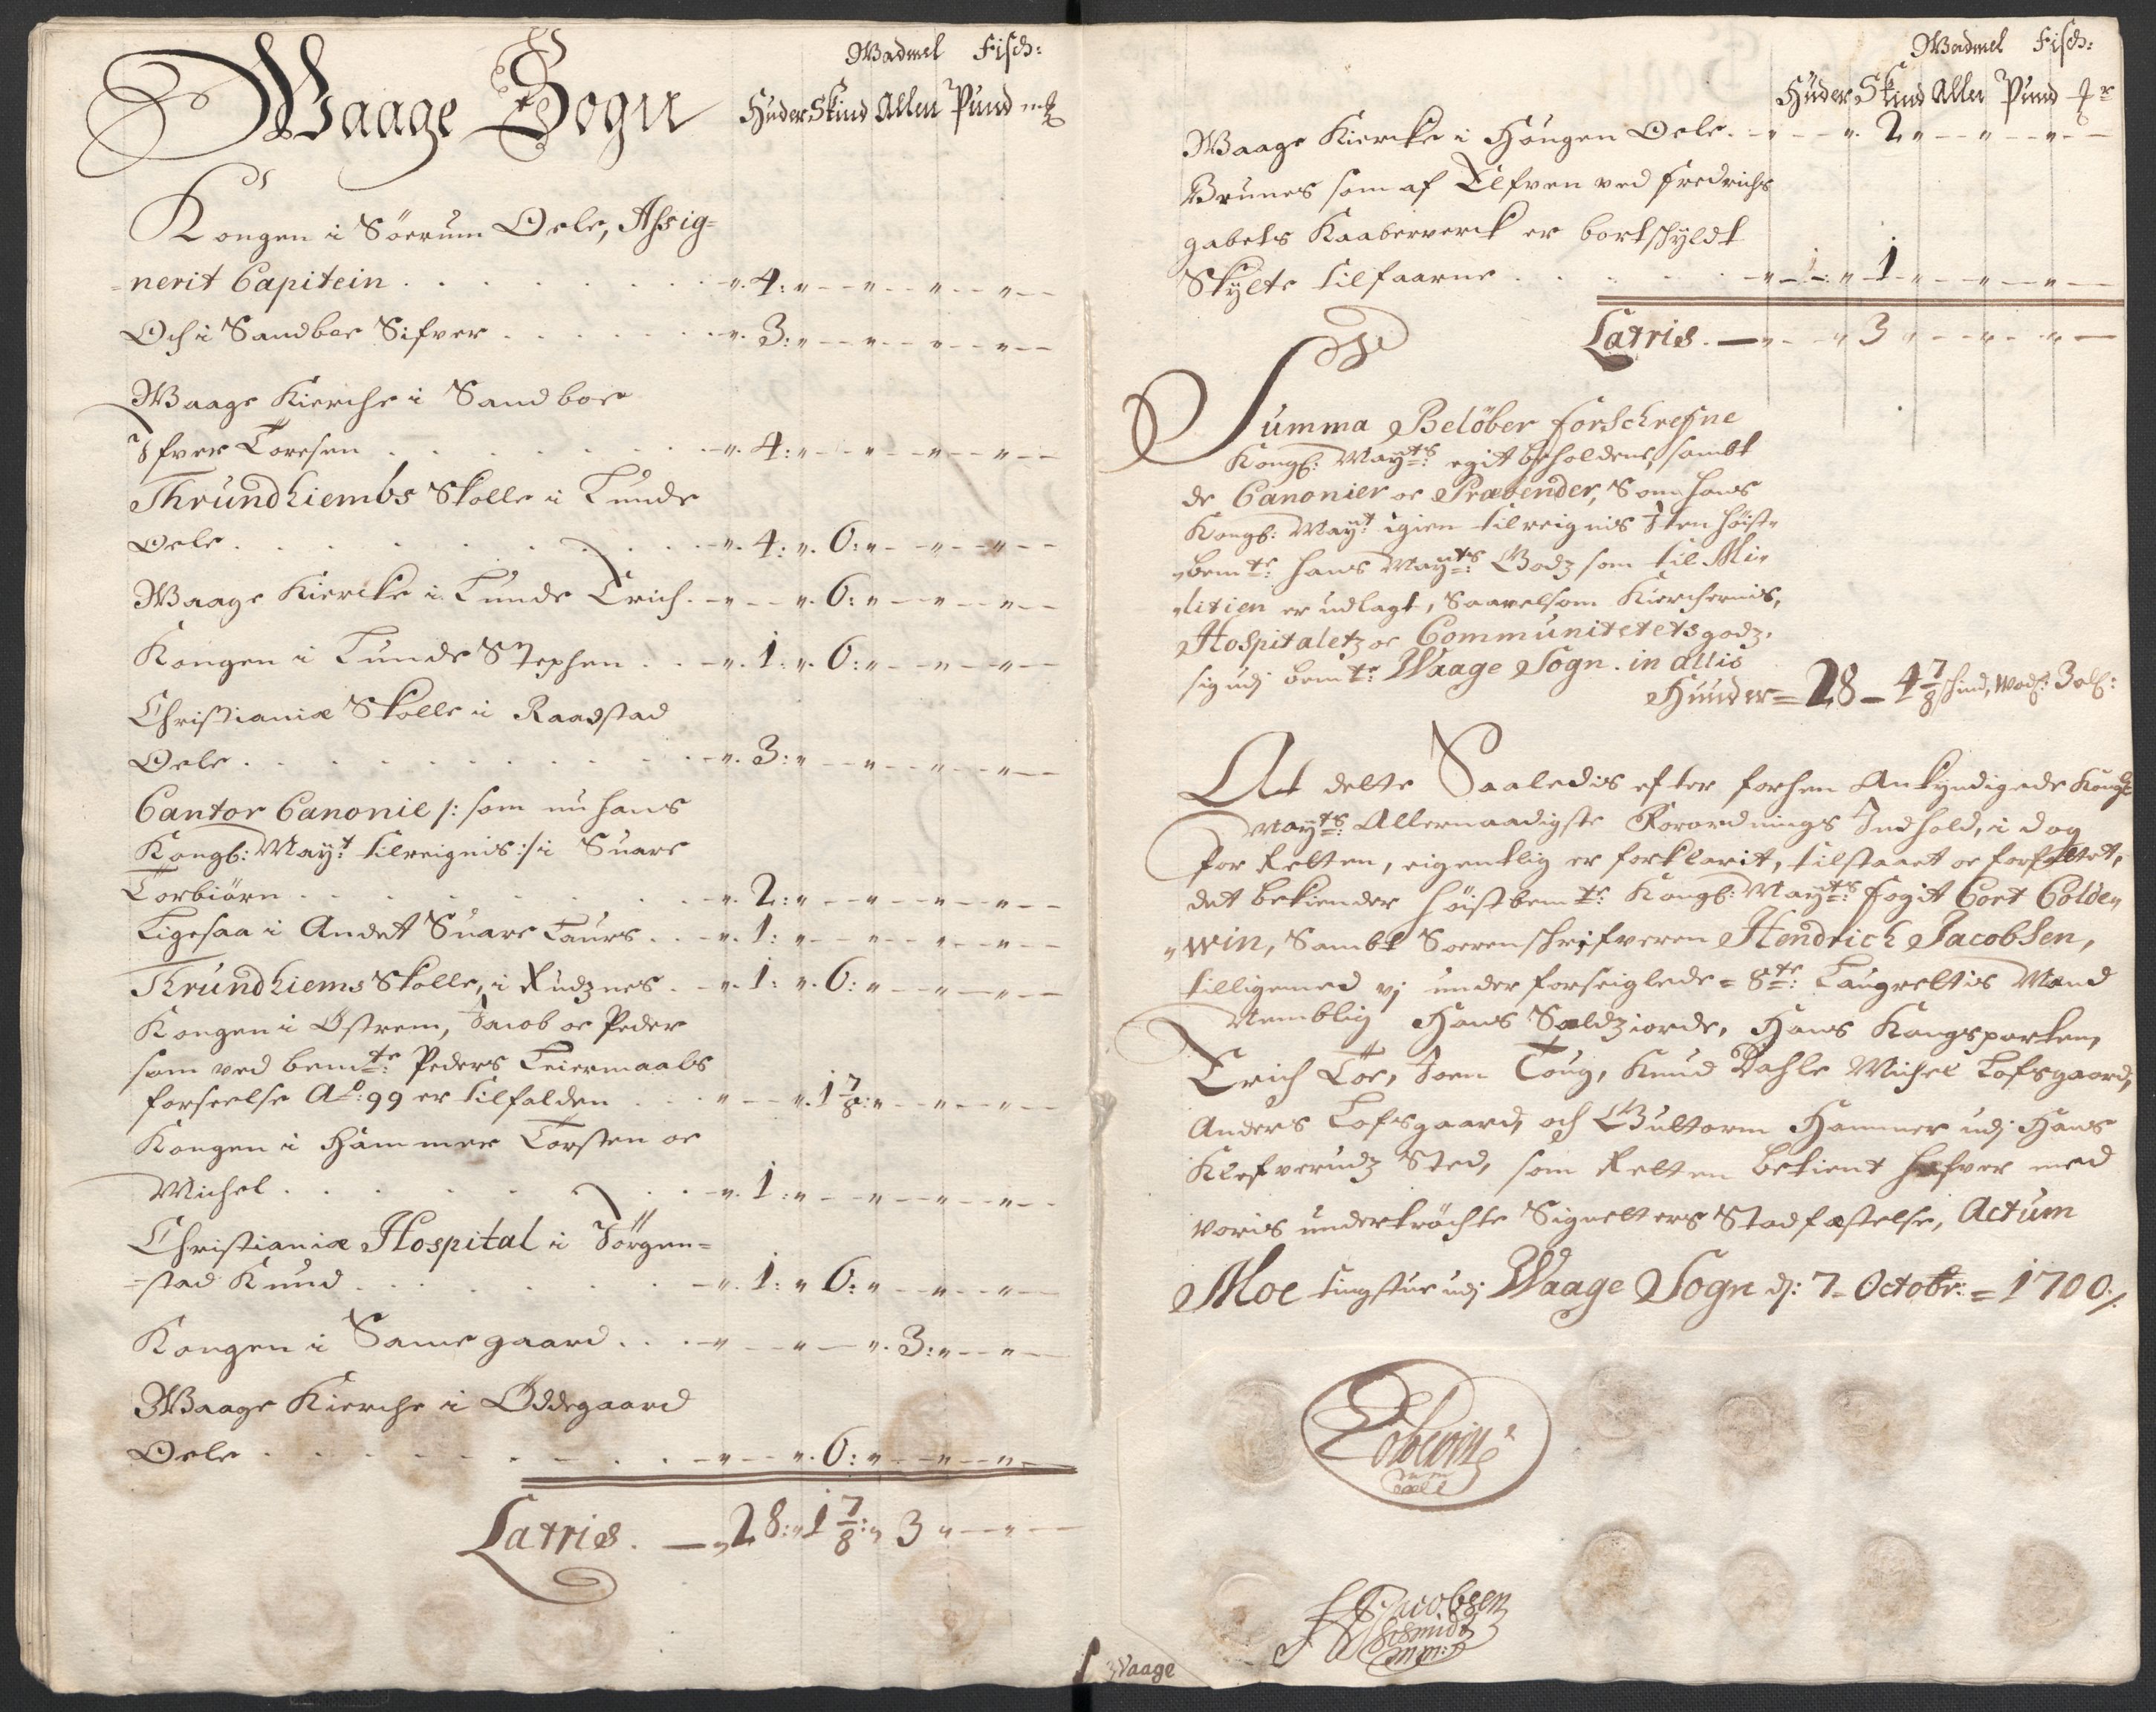 Waage Sogn
Wadmel Fisch:
Huder Skind Allen Pund m℔
Kongen i Söerum Oele, Assig=
=nerit Capitein . . . . . . . ". 4: " — " — " — " —
Och i Sandboe Sifver . . . . . ". 3: " — " — " — " —
Waage Kierche i Sandboe
Ifver Toresen . . . . . . ". 4: " — " — " — " —
Thrundhiembs Skolle i Lunde
Oele . . . . . . . . ". 4: ". 6: " — " — " —
Waage Kiercke i Lunde Erich. — " — ". 6: " — " — " —
Kongen i Lunde Stephen . . — ". 1: ". 6: " — " — " —
Christianiæ Skolle i Raadstad
Oele . . . . . . . . . ". 3: " — " — " — " —
Cantor Canonie /: som nu hans
Kongl: Mayt: tilreignis :/ i Suare
Torbiörn . . . . . . . ". 2: " — " — " — " —
Ligesaa i Andet Suare Laurs . . — ". 1: " — " — " — " —
Thrundhiems Skolle, i Rudznes . — ". 1: ". 6: " — " — " —
Kongen i Östrem, Jacob oc Peder
som ved bemte: Peders Leiermaals
forseelse Ao: 99 er tilfalden . . . " — ". 1 7/8: " — " — " —
Kongen i Hammer Torsten oc
Michel . . . . . . . ". 1: " — " — " — " —
Christianiæ Hospital i Jörgen=
=stad Knud . . . . . . — ". 1: " 6: " — " — " —
Kongen i Sanne gaard . . . — " — " — ". 3: " — " —
Waage Kierche i Öddegaard
Oele . . . . . . . — " — ". 6: " — " — " —
Latris. — " 28: " 1 7/8: " 3 " — " —
Wadmel Fisch:
Huder Skind Allen Pund
Waage Kiercke i Haugen Oele. — " — ". 2 " — " — " —
Brunes som af Elfven ved Fredrichs
gabets Kaaberverck er bortskyldt
Skylte tilfaarne . . . . . — " — : " 1 " — " — " —
Latris. — " — " 3 " — " — " —
Summa Belöber forschrefne
Kongl: Mayts: egit beholdene, sambt
de Canonier oc Præbender, Som hans
Kongl: Mayt: igien tilreignis Iten höist=
"bemte: hans Mayts: Godz som til Mi=
"litien er udlagt, Saavelsom Kierchernis,
Hospitaletz oc Communitetets godz.
sig udj bemte: Waage Sogn. in allis
Hunder = 28 — 4 7/8 skind, Wadl: 3 all:
At dette Saaledis efter forhen Ankyndigede Kongl:
Mayts: Allernaadigste Forordnings Indhold, i dag
for Retten, eigentlig er forklarit, tilstaaet oc forfattet,
det bekiender höistbemte: Kongl: Mayts: fogit Cort Colde=
"win, Sambt Sorenschrifveren Hendrich Jacobsen,
tilligemed vj under forseiglede = 8te: Laugrettis Mænd
Nemblig Hans Sældziorde, Hans Kongsparten,
Erich Löe, Joen Toug, Knud Dahle Michel Lofsgaard,
Anders Lofsgaard, och Guttorm Hammer udj Hans
Klefverudz Sted, som Retten betient hafver med
voris undertröchte Signetters Stadfæstelse, Actum
Moe tingstue udj Waage Sogn d: 7. Octobr: = 1700./.
Coldewin
H Jacobsen
Schmidt
mpp:
Waage